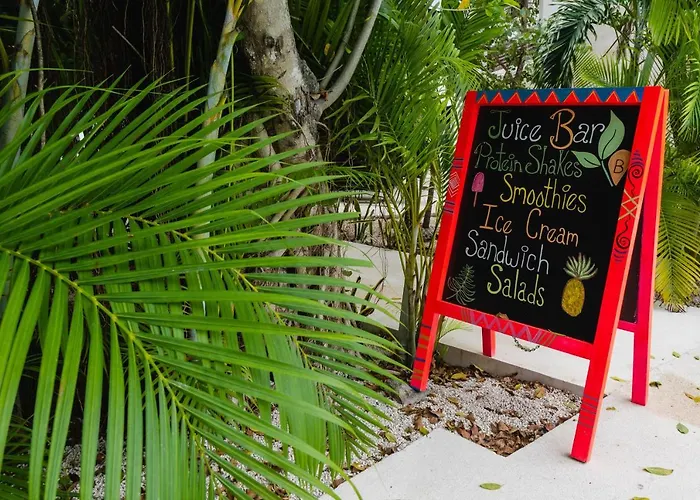 Juice Bar
Protein Shakes
B
Smoothies
Ice Cream
Sandwich
Salads